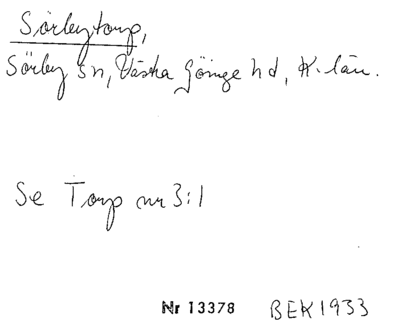 Sörbytorp,
Sörby sn, Västra Göinge hd, K. län.
Se Torp nr 3:1
Nr 13378 BEK 1933